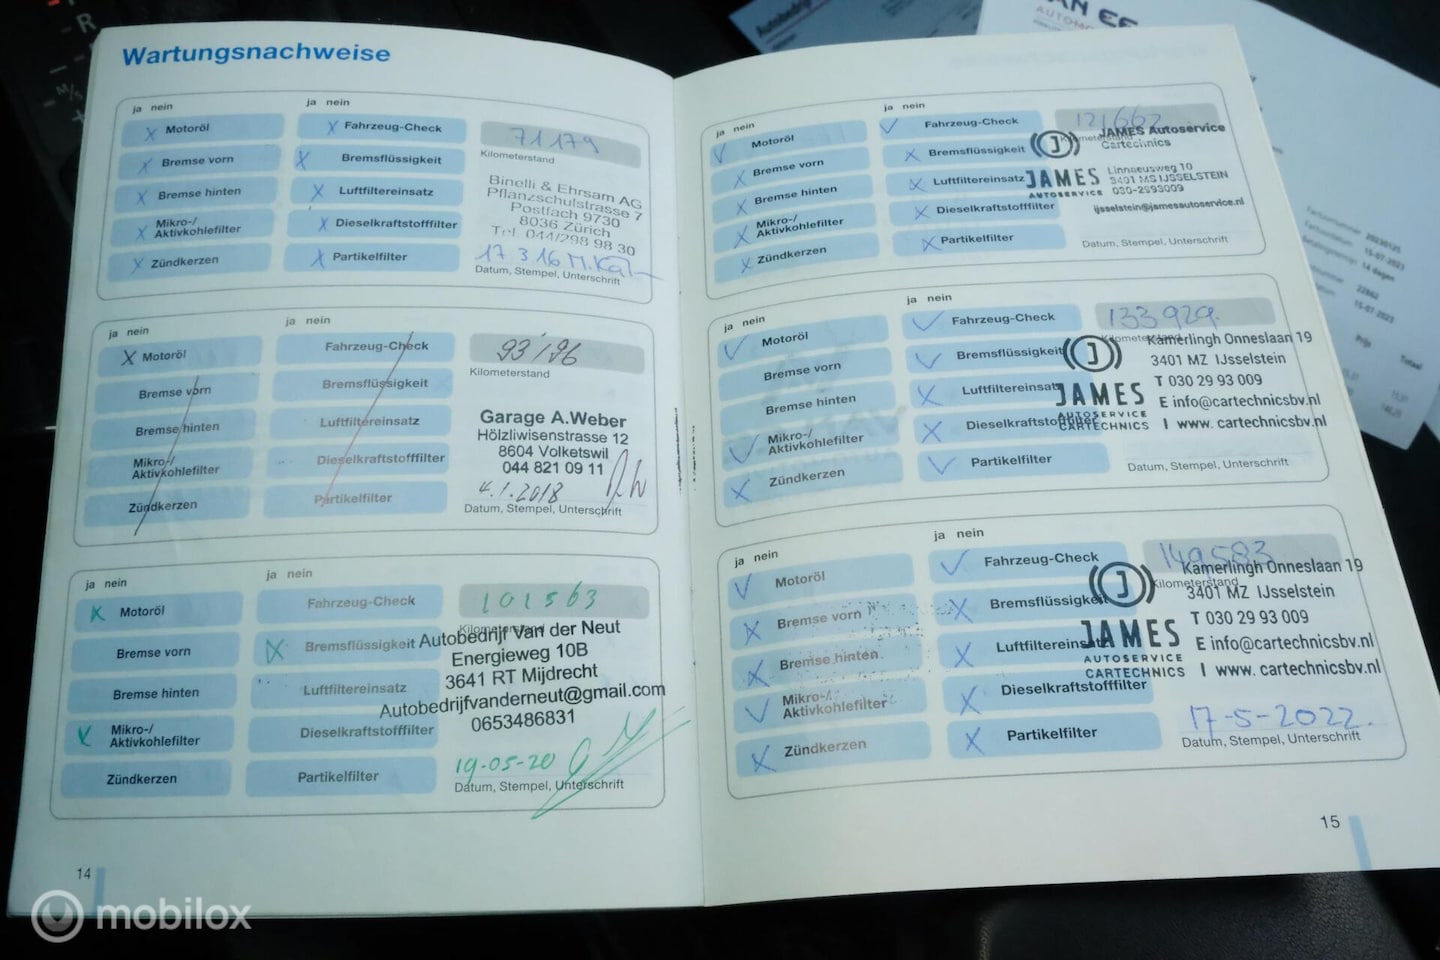 Wartungsnachweise
ja nein
ja nein
Motoröl
Fahrzeug-Check
71179
Kilometerstand
Bremse vorn
Bremsflüssigkeit
Bremse hinten
Luftfiltereinsatz
Mikro-/
Aktivkohlefilter
Dieselkraftstofffilter
Zündkerzen
Partikelfilter
Binelli & Ehrsam AG
Pflanzschulstrasse 7
Postfach 9730
8036 Zürich
Tel. 044/298 98 30
17 3 16
Datum, Stempel, Unterschrift
ja nein
ja nein
Motoröl
Fahrzeug-Check
93'196
Kilometerstand
Bremse vorn
Bremsflüssigkeit
Bremse hinten
Luftfiltereinsatz
Mikro-/
Aktivkohlefilter
Dieselkraftstofffilter
Zündkerzen
Partikelfilter
Garage A.Weber
Hölzliwisenstrasse 12
8604 Volketswil
044 821 09 11
4.1.2018
Datum, Stempel, Unterschrift
ja nein
ja nein
Motoröl
Fahrzeug-Check
101563
Kilometerstand
Bremse vorn
Bremsflüssigkeit
Bremse hinten
Luftfiltereinsatz
Mikro-/
Aktivkohlefilter
Dieselkraftstofffilter
Zündkerzen
Partikelfilter
Autobedrijf Van der Neut
Energieweg 10B
3641 RT Mijdrecht
Autobedrijfvanderneut@gmail.com
0653486831
19-05-20
Datum, Stempel, Unterschrift
14
ja nein
ja nein
Motoröl
Fahrzeug-Check
121662
Kilometerstand
Bremse vorn
Bremsflüssigkeit
Bremse hinten
Luftfiltereinsatz
Mikro-/
Aktivkohlefilter
Dieselkraftstofffilter
Zündkerzen
Partikelfilter
JAMES Autoservice
Cartechnics
JAMES
AUTOSERVICE
Linnaeusweg 10
3401 MS IJSSELSTEIN
030-2993009
ijsselstein@jamesautoservice.nl
Datum, Stempel, Unterschrift
ja nein
ja nein
Motoröl
Fahrzeug-Check
133929
Kilometerstand
Bremse vorn
Bremsflüssigkeit
Bremse hinten
Luftfiltereinsatz
Mikro-/
Aktivkohlefilter
Dieselkraftstofffilter
Zündkerzen
Partikelfilter
JAMES
AUTOSERVICE
CARTECHNICS
Kamerlingh Onneslaan 19
3401 MZ IJsselstein
T 030 29 93 009
E info@cartechnicsbv.nl
I www. cartechnicsbv.nl
Datum, Stempel, Unterschrift
ja nein
ja nein
Motoröl
Fahrzeug-Check
149583
Kilometerstand
Bremse vorn
Bremsflüssigkeit
Bremse hinten
Luftfiltereinsatz
Mikro-/
Aktivkohlefilter
Dieselkraftstofffilter
Zündkerzen
Partikelfilter
JAMES
AUTOSERVICE
CARTECHNICS
Kamerlingh Onneslaan 19
3401 MZ IJsselstein
T 030 29 93 009
E info@cartechnicsbv.nl
I www. cartechnicsbv.nl
17-5-2022
Datum, Stempel, Unterschrift
15
Autobedrijf
Factuurnummer 20230125
Factuurdatum 15-07-2023
14 dagen
22862
15-07-2023
Prijs
Totaal
R
M/S
+
mobilox